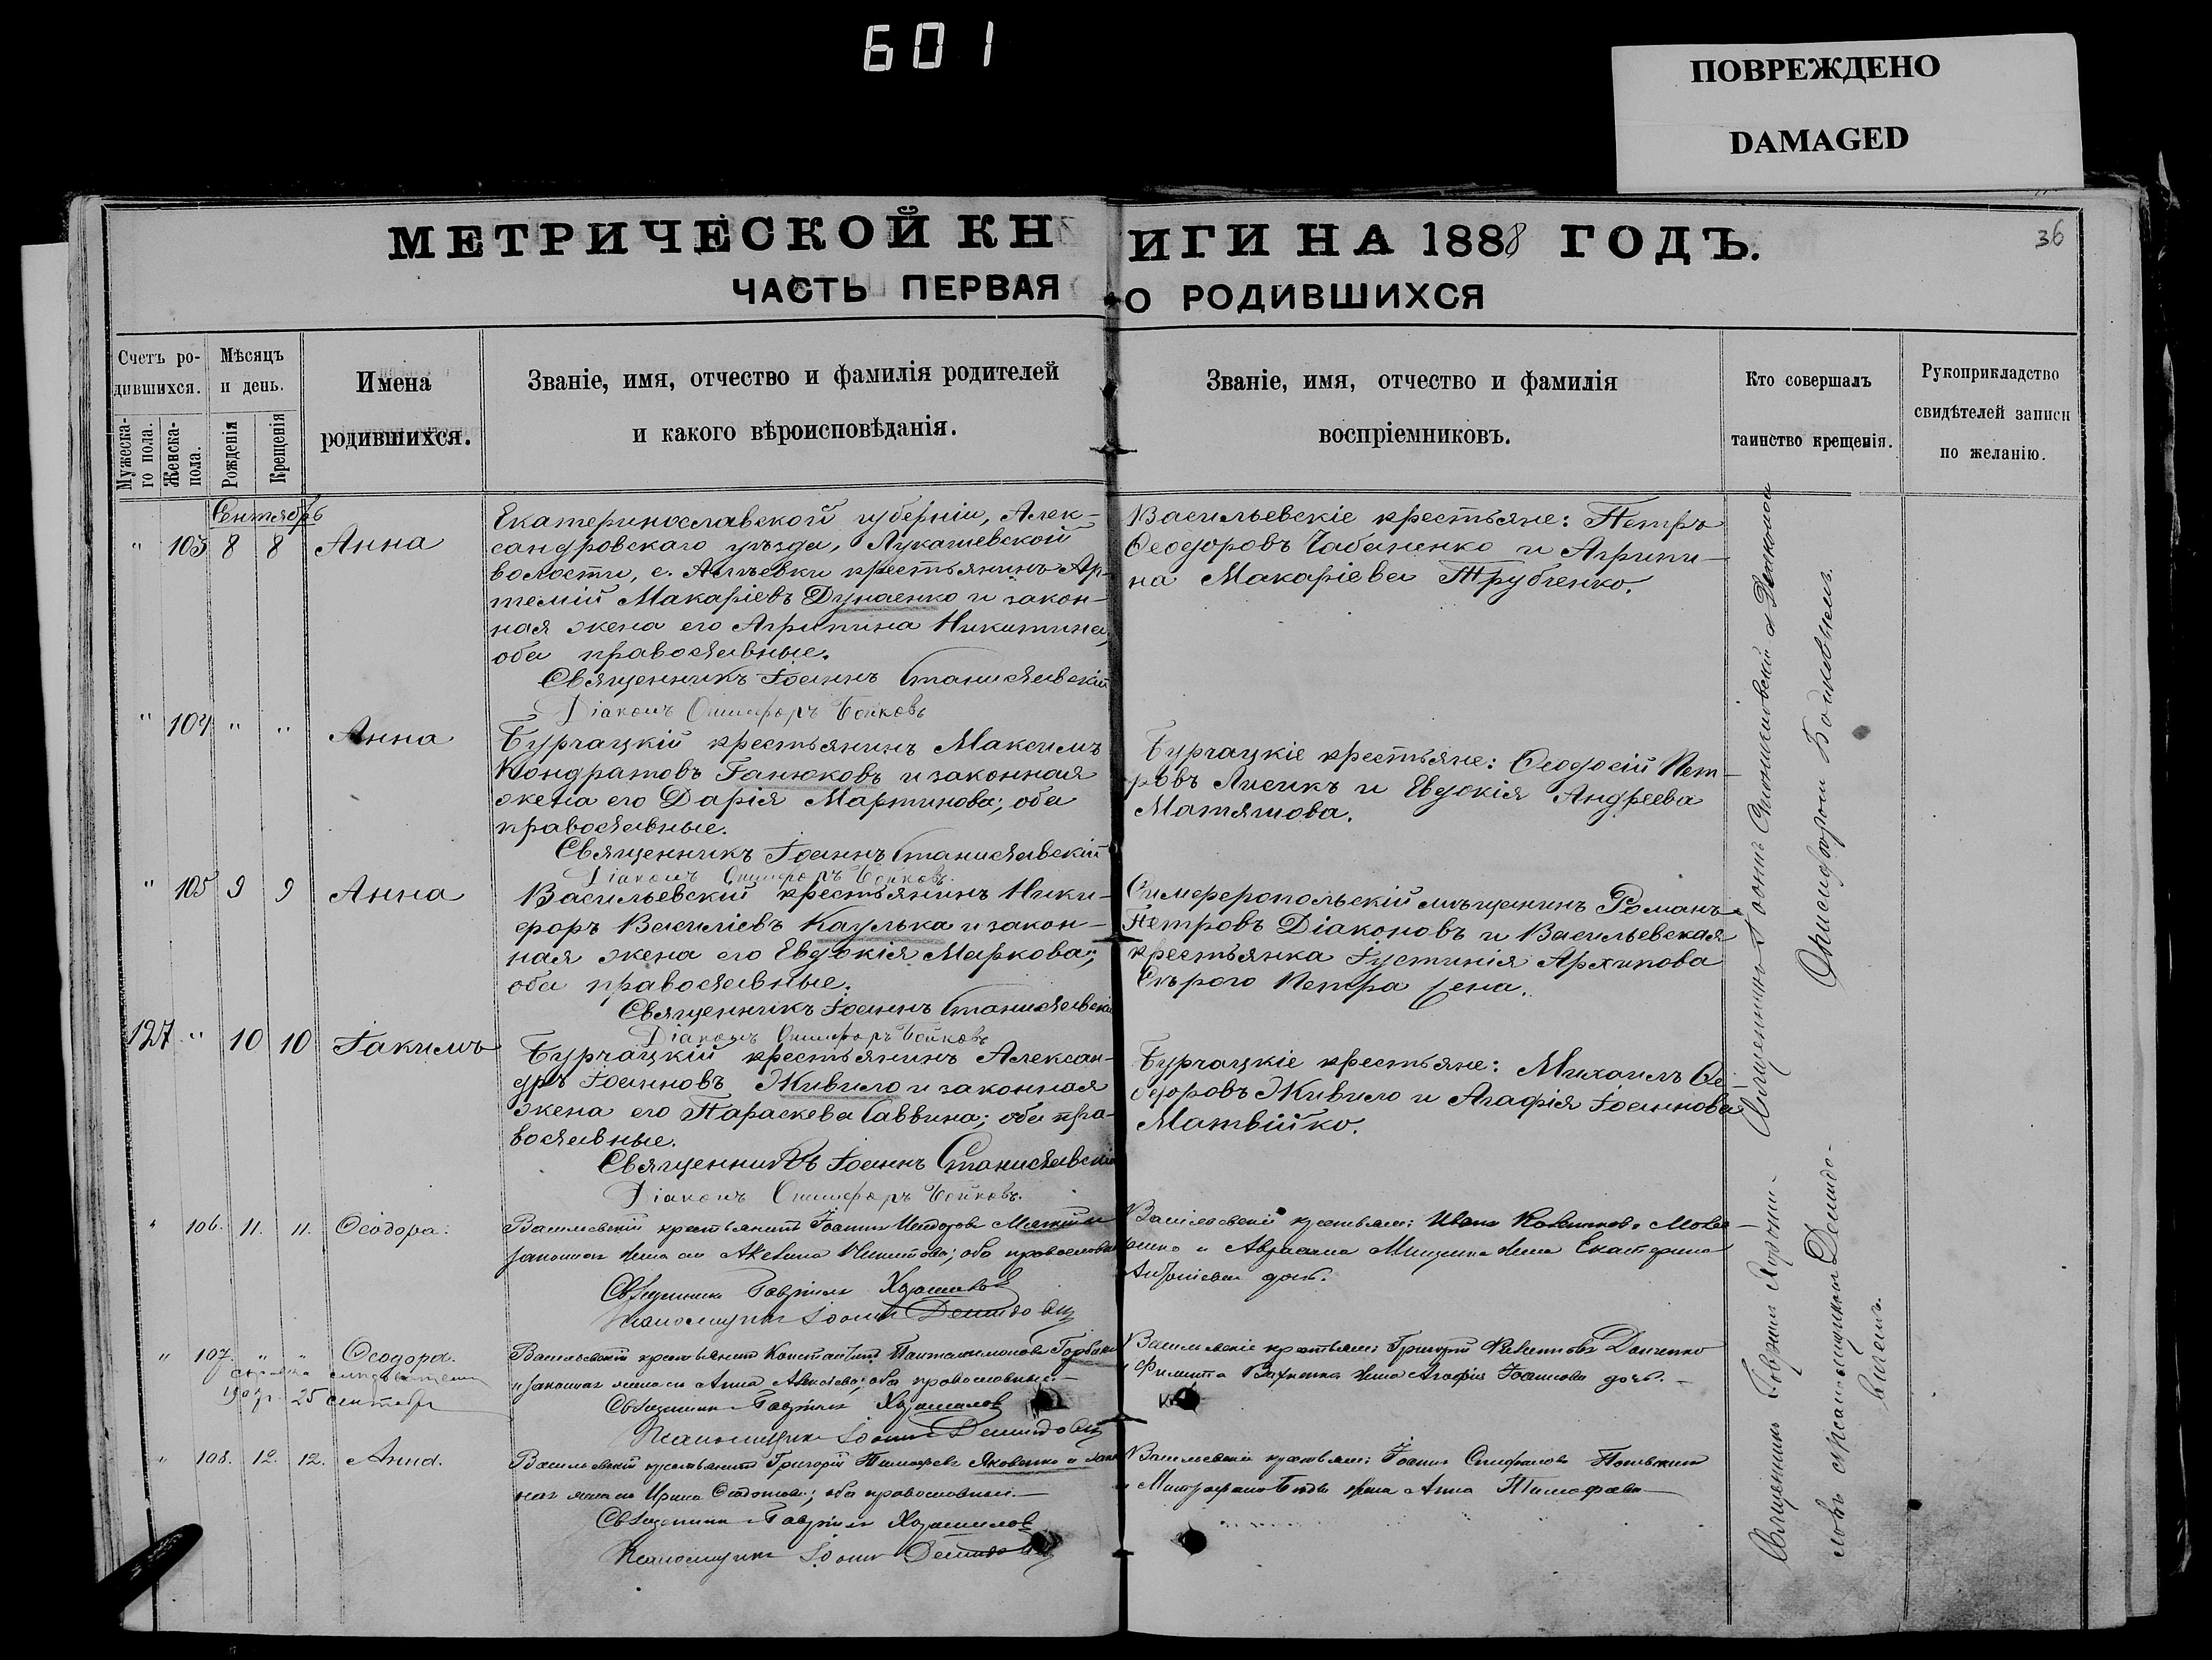 601
ПОВРЕЖДЕНО
DAMAGED
МЕТРИЧЕСКОЙ КНИГИ НА 1888 ГОДЪ.
36
ЧАСТЬ ПЕРВАЯ О РОДИВШИХСЯ
Счетъ ро-
дившихся.
Мужеска-
го пола.
Женска-
пола.
Мѣсяцъ
и день.
Рожденія
Крещенія
Имена
родившихся.
Званіе, имя, отчество и фамилія родителей
и какого вѣроисповѣданія.
Званіе, имя, отчество и фамилія
воспріемниковъ.
Кто совершалъ
таинство крещенія.
Рукоприкладство
свидѣтелей записи
по желанію.
Сентябрь
" 103 8 8 Анна
Екатеринославской губерніи, Алек-
сандровскаго уѣзда, Лукашевской
волости, с. крестьянинъ Ар-
темій Макаріевъ Дунаенко и закон-
ная жена его Агрипина Никитина,
оба православные.
Священникъ Іоаннъ Станиславскій
Діаконъ Онисифоръ Бойковъ
Васильевскіе крестьяне: Петръ
Ѳеодоровъ Чабаненко и Агрипи-
на Макаріева Трубченко.
" 104 " " Анна
Бурчацкій крестьянинъ Максимъ
Кондратовъ Ганюковъ и законная
жена его Дарія Мартинова; оба
православные.
Священникъ Іоаннъ Станиславскій
Діаконъ Онисифоръ Бойковъ.
Бурчацкіе крестьяне: Ѳеодосій Пет-
ровъ Лисикъ и Евдокія Андреева
Матяшова.
" 105 9 9 Анна
Васильевскій крестьянинъ Ники-
форъ Василіевъ Каулька и закон-
ная жена его Евдокія Маркова;
оба православные.
Священникъ Іоаннъ Станиславскій
Діаконъ Онисифоръ Бойковъ
Симферопольскій мѣщанинъ Романъ
Петровъ Діаконовъ и Васильевская
крестьянка Іустинія Архипова
Сѣрого Петра жена.
127 " 10 10 Іакимъ
Бурчацкій крестьянинъ Алексан-
дръ Іоанновъ Живило и законная
жена его Параскева Саввина; оба пра-
вославные.
Священникъ Іоаннъ Станиславскій
Діаконъ Онисифоръ Бойковъ.
Бурчацкіе крестьяне: Михаилъ Ѳе-
одоровъ Живило и Агафія Іоаннова
Матвійко.
" 106. 11. 11. Ѳеодора.
Васильевскій крестьянинъ Іоаннъ
законная жена его Никитова; оба православные
Священникъ Гавріилъ
Псаломщикъ Іоаннъ Демидовичъ
Васильевскіе крестьяне: Иванъ
и Авраама жена Екатерина
дочь.
" 107. " " Ѳеодора.
1907 г. 25 сентября
Васильевскій крестьянинъ Константинъ Пантелеимоновъ
и законная жена его Анна Алексѣева; оба православные
Священникъ Гавріилъ
Псаломщикъ Іоаннъ Демидовичъ
Васильевскіе крестьяне: Григорій Данченко
и Филиппа жена Агафія Іоаннова дочь.
" 108. 12. 12. Анна.
Васильевскій крестьянинъ Григорій Тимофеевъ Яковенко и закон
ная жена его Ирина; оба православные.
Священникъ Гавріилъ
Псаломщикъ Іоаннъ Демидовичъ
Васильевскіе крестьяне: Іоаннъ Стефановъ
и Митрофана жена Анна Тимофеева
Священникъ Іоаннъ Станиславскій съ Діакономъ
Онисифоромъ Бойковымъ.
Священникъ Гавріилъ
съ псаломщикомъ Демидо-
вичемъ.